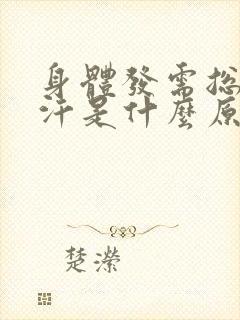 身體發需總
汗是什麼原
楚濴